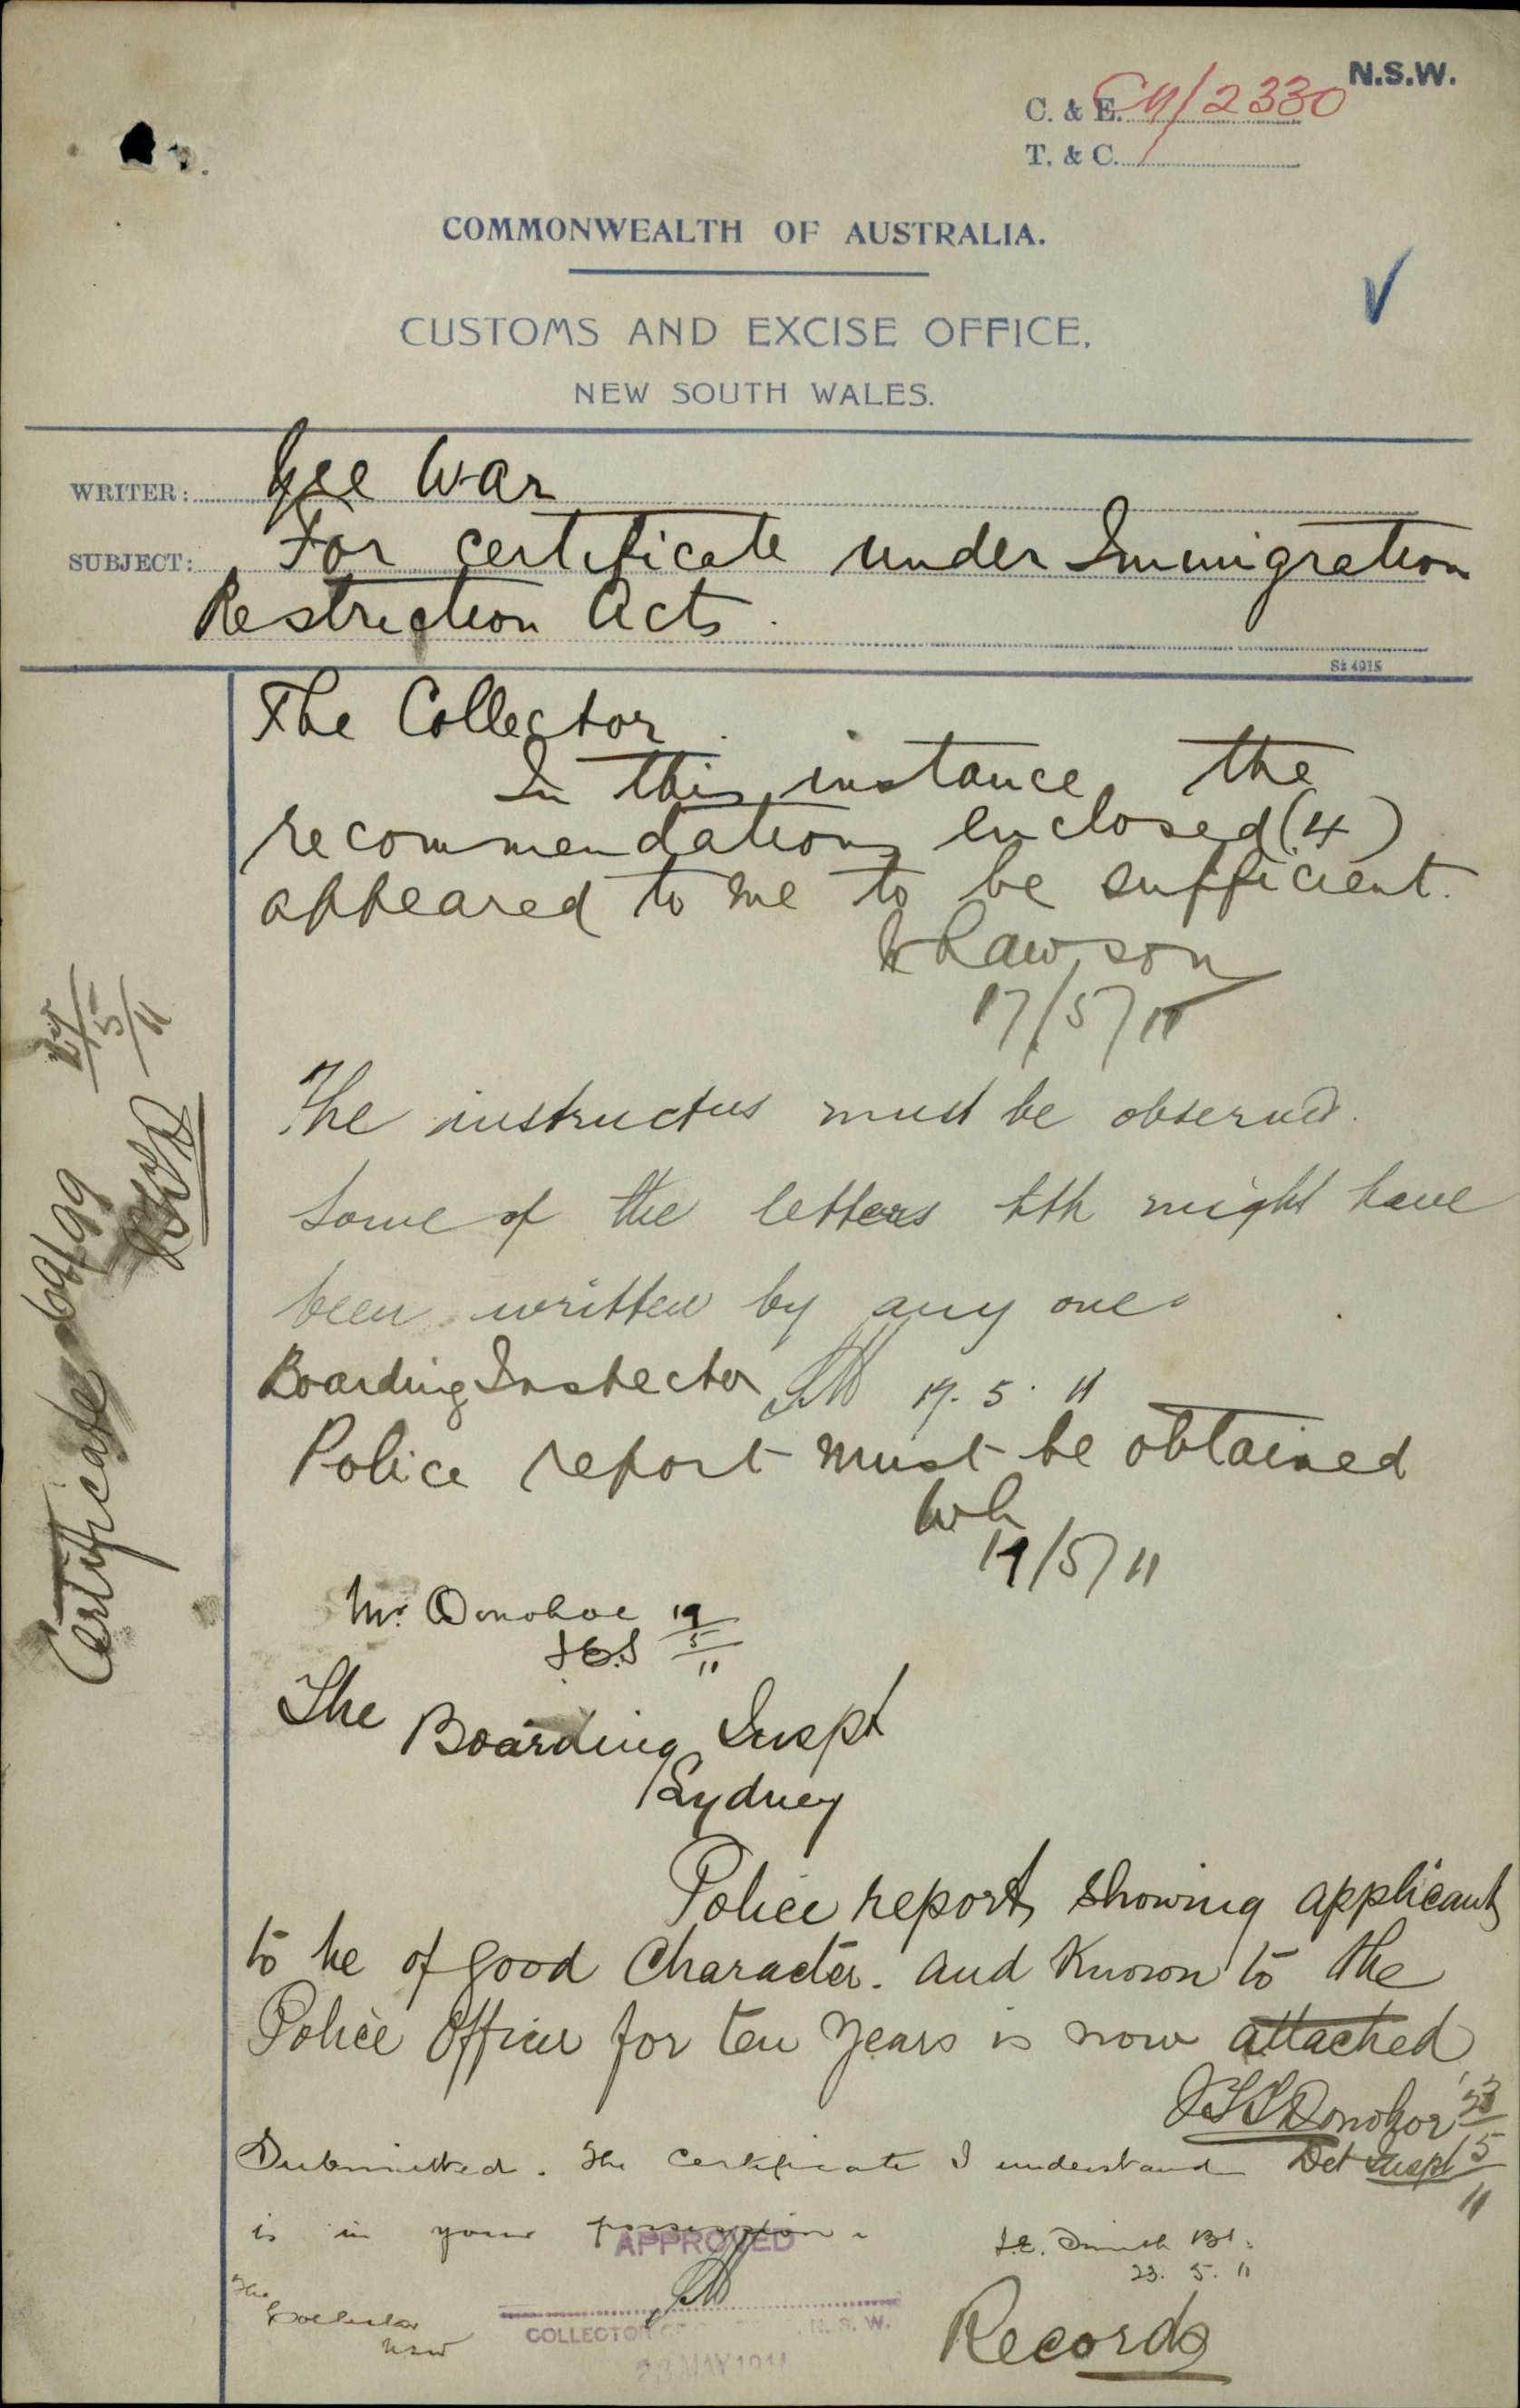 N.S.W.
C. & E. C11/2330
T. & C.
COMMONWEALTH OF AUSTRALIA.
CUSTOMS AND EXCISE OFFICE,
NEW SOUTH WALES.
WRITER: Gee War
SUBJECT: For certificate under Immigration
Restriction Acts.
The Collector.
In this instance the
recommendations enclosed (4)
appeared to me to be sufficient.
Lawson
17/5/11
The instructns must be observed.
Some of the letters might have
been written by any one.
Boarding Inspector 17. 5. 11
Police report must be obtained
WL
19/5/11
Mr. Donohoe 19/5/11
The Boarding Inspt
Sydney
Police report showing applicant
to be of good Character. and Known to the
Police Officer for ten years is now attached
Donohoe 23/5/11
Det Inspt
Submitted. The certificate I understand
is in your possession.
J.E. Smith B.I.
23. 5. 11
The
Collector
NSW
APPROVED
COLLECTOR OF N. S. W.
23 MAY 1911
Records
Certificate 69/99
5/11